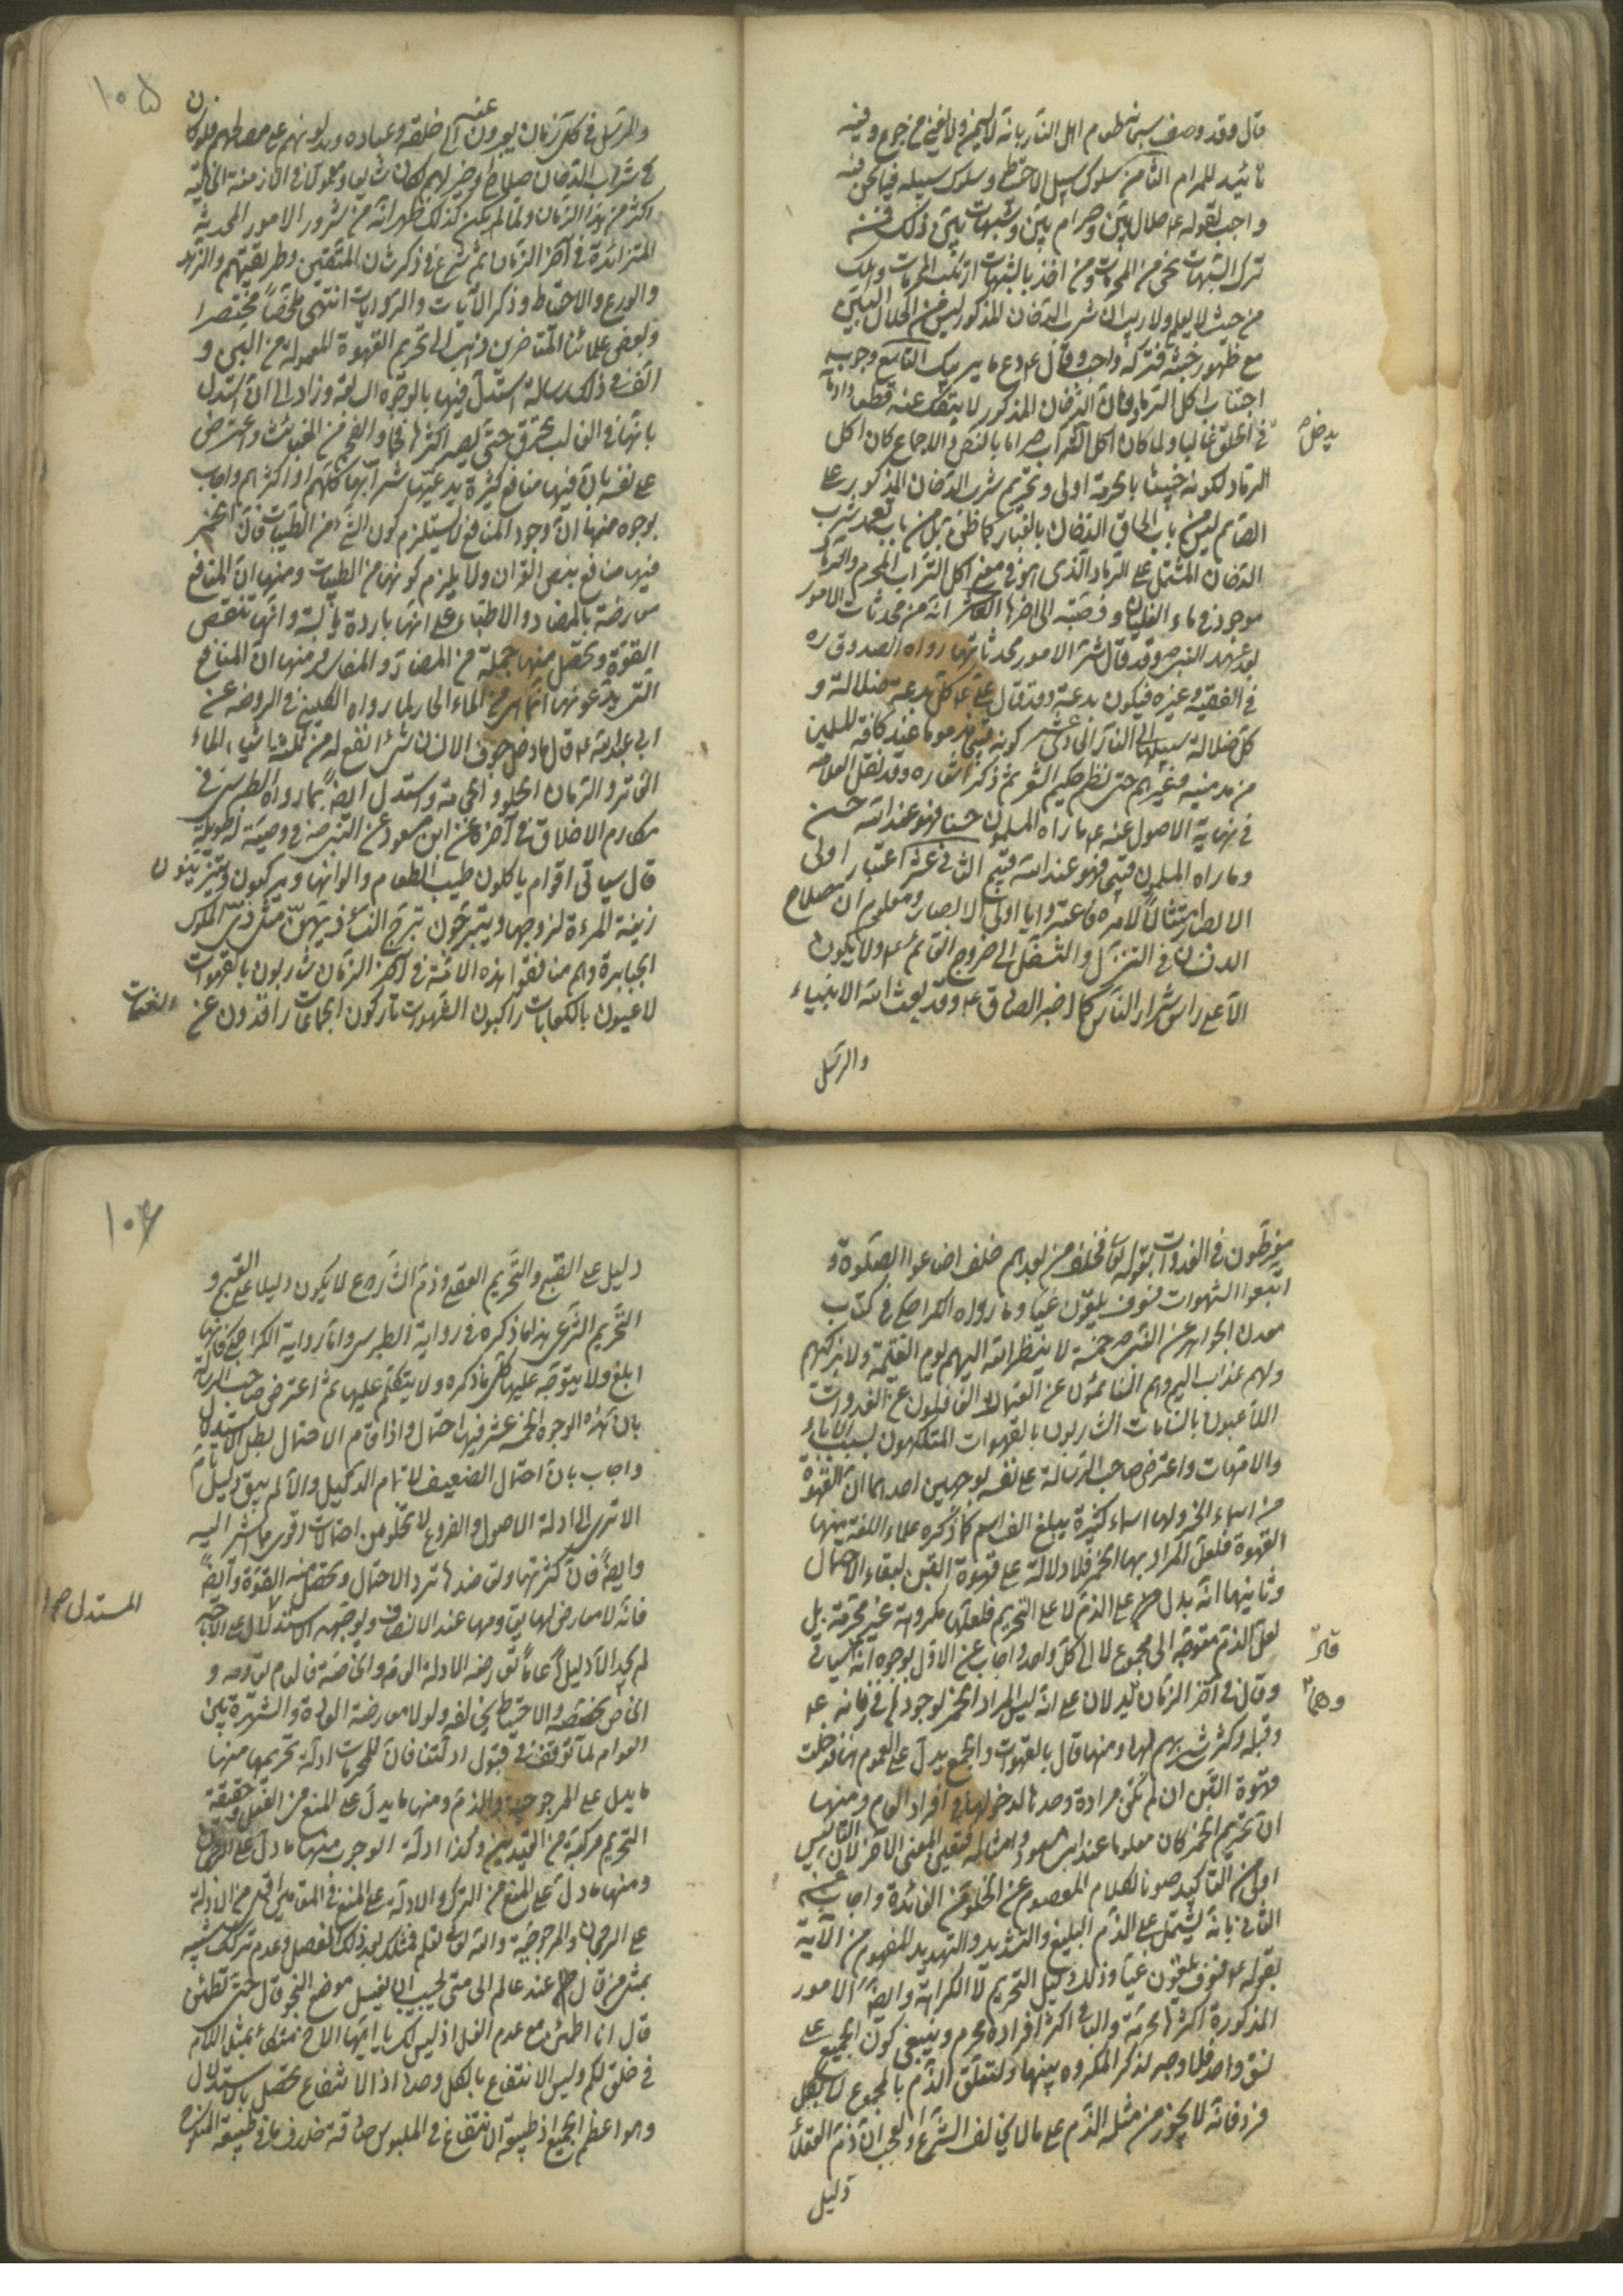 قال وقد وصف سبحانه طعام اهل النار بانه لا يسمن ولا يغنى من جوع وفيه
تائيد للمرام الثامن سلوك سبيل الاحتياط وسلوك سبيله فيما نحن فيه
واجب لقوله ع حلال بيّن وحرام بيّن وشبهات بين ذلك فمن
ترك الشبهات نجى من المحرمات ومن اخذ بالشبهات ارتكب المحرمات وهلك
من حيث لا يعلم ولا ريب ان شرب الدخان المذكور ليس من الحلال البيّن
مع ظهور خبثه فتركه واجب وقال ع دع ما يريبك التاسع وجوب
اجتناب اكل الرماد فان الدخان المذكور لا ينفك عنه قطعا وانه
يدخل
فى الحلق غالبا ولما كان اكل التراب حراما بالنص والاجماع كان اكل
الرماد لكونه خبيثا بالحرمة اولى وتحريم شرب الدخان المذكور على
الصائم ليس من باب الحاق الدخان بالغبار كما ظن بل من باب تعمد شرب
الدخان المشتمل على الرماد الذى هو فى معنى اكل التراب المحرم والرماد
موجود فى ماء الغليان وقصبته الى اخرها العاشر انه من محدثات الامور
بعد عهد النبى ص وقد قال شر الامور محدثاتها رواه الصدوق ره
فى الفقيه وغيره فيكون بدعة وقد قال على ع كل بدعة ضلالة و
كل ضلالة سبيلها الى النار الحادى عشر كونه قبيحا مذموما عند كافة المسلمين
من مدمنيه وغيرهم حتى نظم حكيم الشعر ثم ذكر اشعاره وقد نقل العلامه
فى نهاية الاصول عنه ع ما راه المسلمون حسنا فهو عند الله حسن
وما راه المسلمون قبيحا فهو عند الله قبيح الثانى عشر اعتبار اولى
الابصار امتثالا لامره فاعتبروا يا اولى الابصار ومعلوم ان صلاح
الانسان فى التنزل والتسفل الى خروج القائم ع ولا يكون
الا على راس شرار الناس كما اخبر الصادق ع وقد بعث الله الانبياء
والرسل
۱۰۵
والرسل فى كل زمان يعبرون عنه الى خلقه وعباده ويدلونهم على مصالحهم فلو كان
فى شرب الدخان صلاح وخير لهم لكان شايعا ومعمولا فى الازمنة الخالية
اكثر من هذا الزمان ولما لم يكن كذلك ظهر انه من شرور الامور المحدثة
المتزائدة فى آخر الزمان ثم شرع فى ذكر شان المتقين وطريقتهم والزهد
والورع والاحتياط وذكر الآيات والروايات انتهى ملخصا مختصرا
وبعض علمائنا المتاخرين ذهب الى تحريم القهوة المعمولة من البن و
الف فى ذلك رسالة استدل فيها بالوجوه السالفة وزاد الى ان استدل
بانها فى الغالب تحترق حتى يصير اكثرها فحما والفحم من الخبائث واعترض
على نفسه بان فيها منافع كثيرة يدعيها شرابها كلهم او اكثرهم واجاب
بوجوه منها ان وجود المنافع لا يستلزم كون الشئ من الطيبات فان الخمر
فيها منافع بنص القرآن ولا يلزم كونها من الطيبات ومنها ان المنافع
معارضة بالمضار والاطباء على انها باردة يابسة وانها تنقص
القوة وتحصل منها جملة من المضار والمفاسد ومنها ان المنافع
التى يدعونها انما هى من الماء الحار لما رواه الكلينى فى الروضه عن
ابى عبد الله ع قال ما دخل جوف الانسان شئ انفع له من ثلثة اشياء الماء
الفاتر والرمان الحلو والحجامة واستدل ايضا بما رواه الطبرسى فى
مكارم الاخلاق فى آخره عن ابن مسعود عن النبى ص فى وصيته له طويلة
قال سياتى اقوام ياكلون طيب الطعام والوانها ويركبون ويتزينون
زينة المرءة لزوجها ويتبرجون تبرج النساء زيهن مثل زى الملوك
الجبابرة وهم منافقوا هذه الامة فى آخر الزمان شاربون بالقهوات
لاعبون بالكعبات راكبون الشهوات تاركون الجماعات راقدون عن العتمات
مفرطون فى الغدوات يقول تعالى فخلف من بعدهم خلف اضاعوا الصلوة و
اتبعوا الشهوات فسوف يلقون غيا وما رواه الكراجكى فى كتاب
معدن الجواهر عن النبى ص خمسة لا ينظر الله اليهم يوم القيمة ولا يزكيهم
ولهم عذاب اليم وهم النائمون عن العتمات الغافلون عن الغدوات
اللاعبون بالشامات الشاربون بالقهوات المتفكهون بسب الآباء
والامهات واعترض صاحب الرسالة على نفسه بوجهين احدهما ان القهوة
من اسماء الخمر ولها اسماء كثيرة يبلغ الف اسم كما ذكره علماء اللغة منها
القهوة فلعل المراد بها الخمر فلا دلالة على قهوة البن لبقاء الاحتمال
وثانيهما انه يدل على الذم لا على التحريم فلعلها مكروهة غير محرمة بل
لعل الذم متوجه الى مجموع لا الى كل واحد واجاب عن الاول بوجوه انه سياتى
وقال فى آخر الزمان يدلان على انه ليس المراد الخمر لوجودها فى زمانه ع
وقبله وكثرة شربهم لها ومنها قال بالقهوات والجمع يدل على العموم فتدخلت
قهوة البن ان لم تكن مرادة وحدها لدخولها فى افراد العام ومنها
ان تحريم الخمر كان معلوما عند ابن مسعود وامثاله فتعين المعنى الآخر لان التاسيس
اولى من التاكيد صونا لكلام المعصوم عن الخلو من الفائدة واجاب عن
الثانى بانه يشتمل على الذم البليغ والتشديد والتهديد المفهوم من الآية
بقوله ع فسوف يلقون غيا وذلك دليل التحريم لا الكراهة وايضا الامور
المذكورة اكثرها محرمة والباقى اكثر افراده محرم وينبغى كون الجميع على
نسق واحد فلا وجه لذكر المكروه بينها ولتعلق الذم بالمجموع لا بكل
فرد فانه لا يجوز من مثله الذم على ما لا يخالف الشرع والعجب ان ذم العقلاء
دليل
۱۰۶
دليل على القبح والتحريم العقلى وذم الشارع لا يكون دليلا على القبح و
التحريم الشرعى هذا ما ذكره فى رواية الطبرسى واما رواية الكراجكى فانها
ابلغ ولا يتوجه عليها كل ما ذكره ولا يتكلم عليها ثم اعترض صاحب الرسالة
بان هذه الوجوه الخمسة عشر فيها احتمال واذا قام الاحتمال بطل الاستدلال
واجاب بان احتمال الضعيف لا تمام الدليل والا لم يبق دليل تام
الا ترى الى ادلة الاصول والفروع لا تخلو من احتمالات اقوى مما اشير اليه
المستدل
وايضا فان كثرتها وتعاضدها ترد الاحتمال وتحصل منه القوة وايضا
فانه لا معارض لها يقاومها عند الانصاف ولو توجه الاستدلال على الاباحة
لم يجد الا دليلا عاما تعارضه الادلة العامة والخاصة فالعام يقاومه و
الخاص يخصصه والاحتياط يخالفه ولولا معارضة العادة والشهرة بين
العوام لما توقف فى قبول ادلتنا فان للمحرمات ادلة تحريمها منها
ما يدل على المرجوحية والذم ومنها ما يدل على المنع من الفعل وحقيقة
التحريم مركبة من القيدين وكذا ادلة الوجوب منها ما دل على الرجحان
ومنها ما دل على المنع من الترك والادلة على المنع فى المقامين اقل من الادلة
على الرجحان والمرجوحية والله تعالى يعلم فمثلك بعد ذلك المفصل وعدم ترك شبه
بمثل من قال عند عالم الى متى يجيب ان يغسل موضع النجو قال حتى تطمئن
قال انا اطمئن مع عدم الغسل اذ ليس لك يا ايها الاخ تمسك بمثل الكلام
فى خلق لكم وليس الانتفاع بالكل وحده اذ الانتفاع تحصل بالاستدلال
وهو اعظم الجميع اذ طبيعة الانتفاع فى الملبوس صادقة خلاف ما فى طبيعة المنكوح